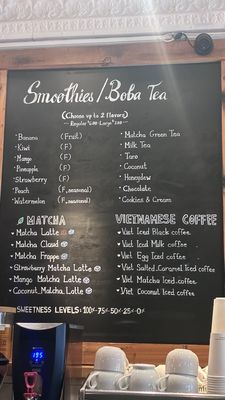 Smoothies/Boba Tea
(Choose up to 2 flavors)
Banana (Fruit)
Kiwi (F)
Mango (F)
Pineapple (F)
Strawberry (F)
Peach (F, seasonal)
Watermelon (F, seasonal)
Matcha Green Tea
Milk Tea
Taro
Coconut
Honeydew
Chocolate
Cookies & Cream
MATCHA
Matcha Latte
Matcha Cloud
Matcha Frappe
Strawberry Matcha Latte
Mango Matcha Latte
Coconut Matcha Latte
VIETNAMESE COFFEE
Viet Iced Black coffee
Viet Iced Milk coffee
Viet Egg Iced coffee
Viet Salted Caramel Iced coffee
Viet Matcha Iced coffee
Viet Coconut Iced coffee
SWEETNESS LEVELS: 100%-75%-50%-25%-0%
195